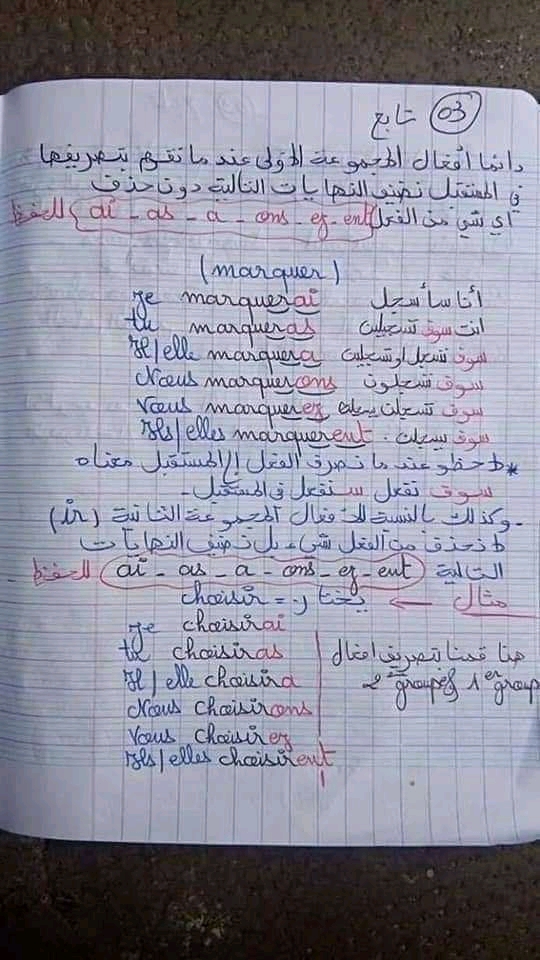 03 تابع
دائما أفعال المجموعة الأولى عند ما نقوم بتصريفها
في المستقبل نضيف النهايات التالية دون حذف
أي شي من الفعل ai - as - a - ons - ez - ent للحفظ
(marquer)
Je marquerai أنا سأسجل
tu marqueras انت سوف تسجلين
Il/elle marquera سوف
Nous marquerons سوف
Vous marquerez سوف
Ils/elles marquerent . سوف
* لاحظو عند ما نصرف الفعل إلى المستقبل معناه
سوف نفعل سنفعل في المستقبل -
- وكذلك بالنسبة للأفعال المجموعة الثانية (ir)
لا نحذف من الفعل شيء بل نضيف النهايات
التالية ai - as - a - ons - ez - ent للحفظ -
مثال ← choisir = يختار
je choisirai
tu choisiras هنا قمنا بتصريف افعال
Il / elle choisira 2ème groupe 1er group
Nous choisirons
Vous choisirez
Ils/elles choisirent